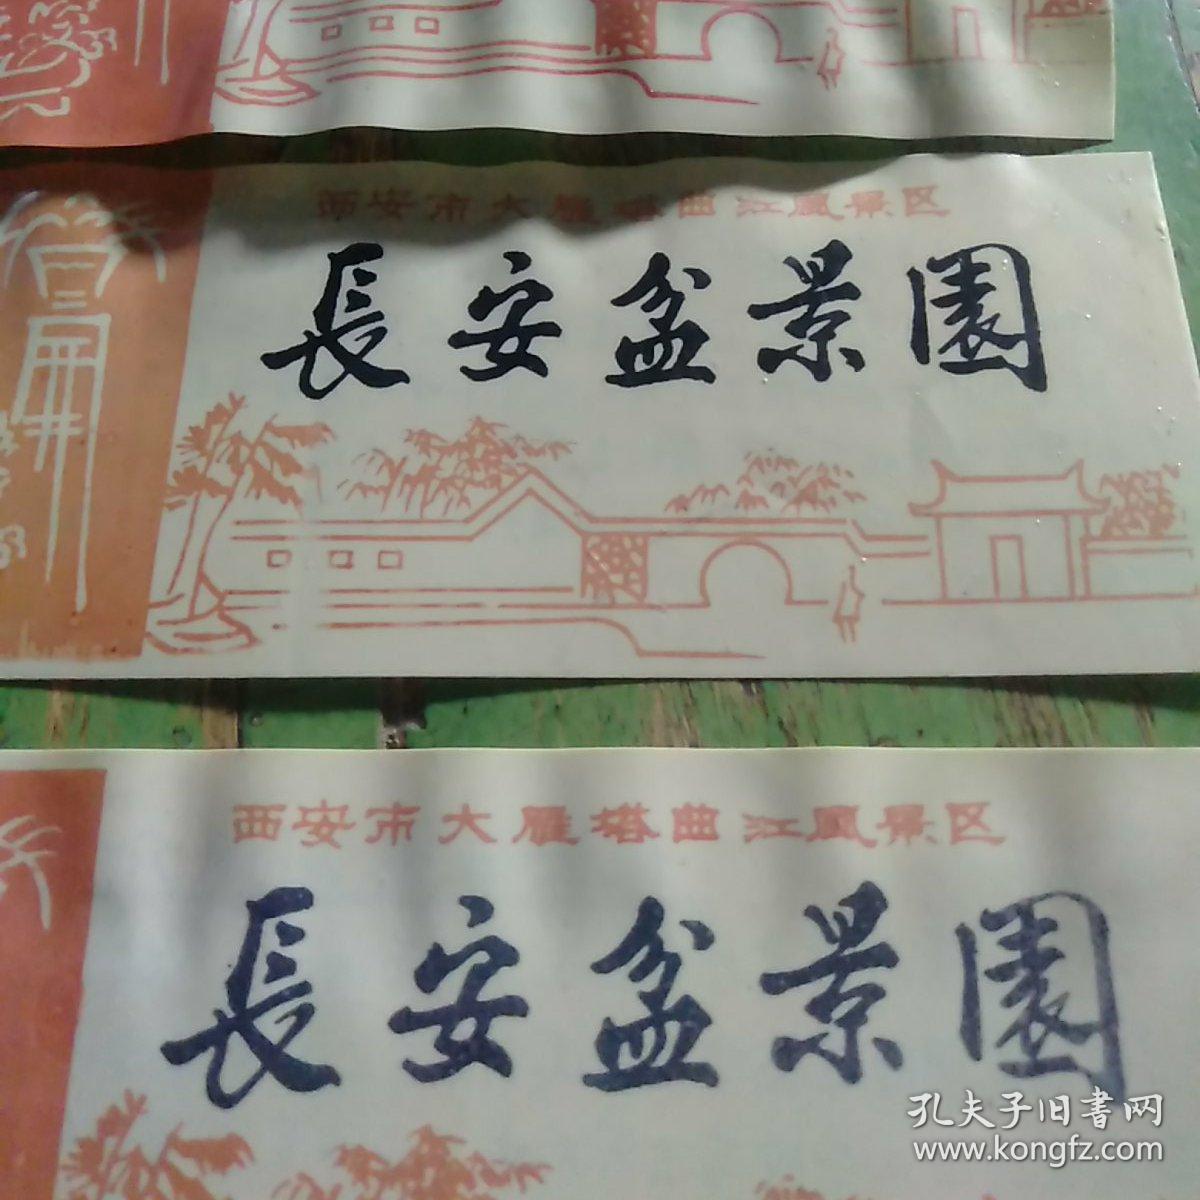 西安市大雁塔曲江風景区
長安盆景園
西安市大雁塔曲江風景区
長安盆景園
孔夫子旧書网
www.kongfz.com